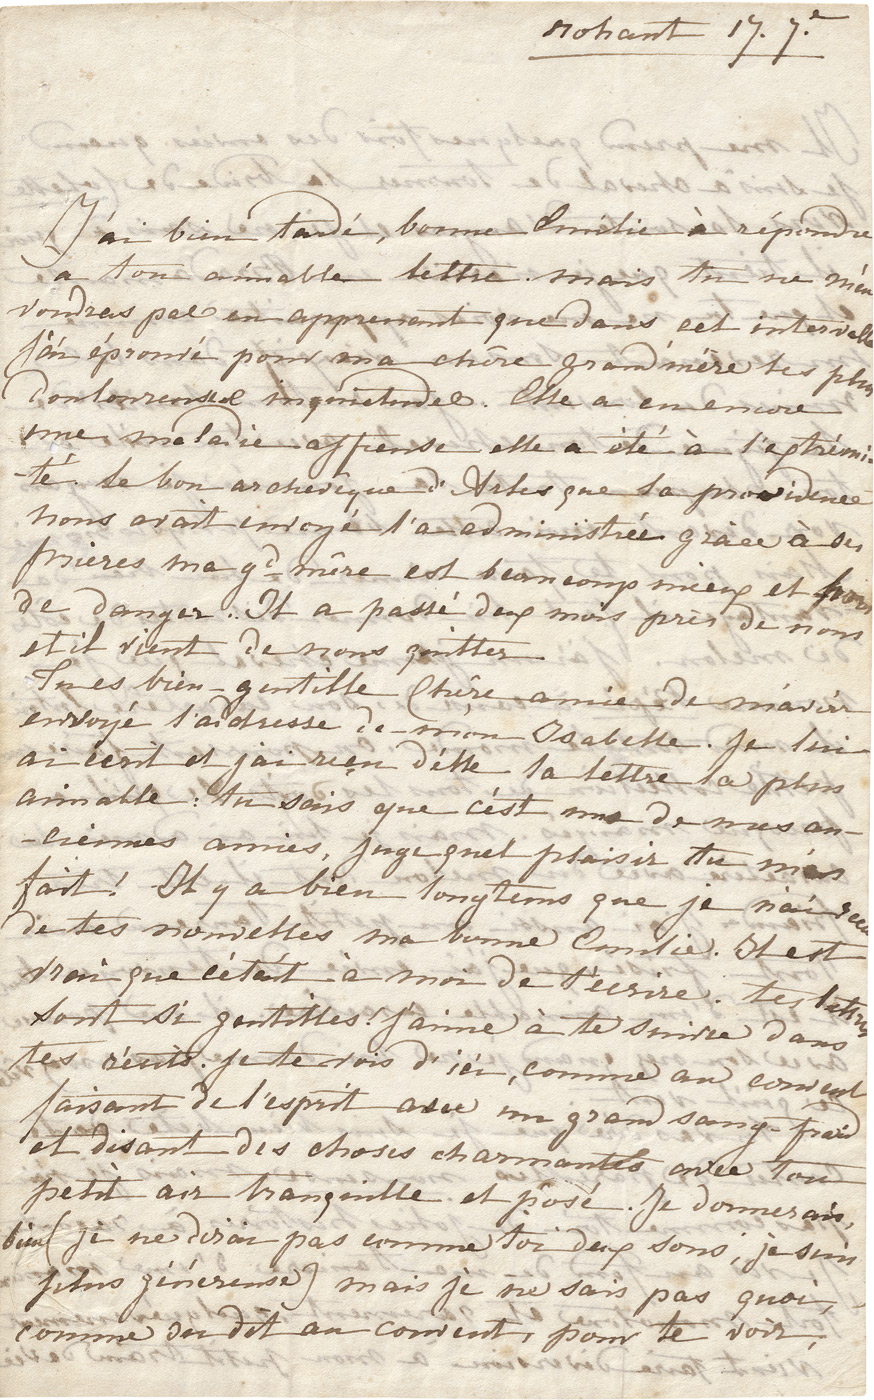 nohant 17. 7.e
J'ai bien tardé, bonne Emilie à répondre
a ton aimable lettre. mais tu ne m'en
voudras pas en apprenant que dans cet intervalle
j'ai éprouvé pour ma chère Grand'mère les plus
douloureuses inquietudes. Elle a eu encore
une maladie affreuse elle a été à l'extrémi-
-té. Le bon archevêque d'Arles que la providence
nous avait envoyé l'a administrée grâce à ses
prières ma gd. mère est beaucoup mieux et hors
de danger. Il a passé deux mois près de nous
et il vient de nous quitter.
Tu es bien gentille Chère amie de m'avoir
envoyé l'addresse de mon Isabelle. Je lui
ai écrit et j'ai reçu d'elle la lettre la plus
aimable: tu sais que c'est une de mes an-
-ciennes amies, juge quel plaisir tu m'as
fait! Il y a bien longtems que je n'ai reçu
de tes nouvelles ma bonne Emilie. Il est
vrai que c'était à moi de t'écrire. tes lettres
sont si gentilles! j'aime à te suivre dans
tes récits. Je te vois d'ici, comme au couvent
faisant de l'esprit avec un grand sang-froid
et disant des choses charmantes avec ton
petit air tranquille et posé. Je donnerais,
bien (je ne dirai pas comme toi deux sous, je suis
plus généreuse) mais je ne sais pas quoi,
comme on dit au couvent, pour te voir,